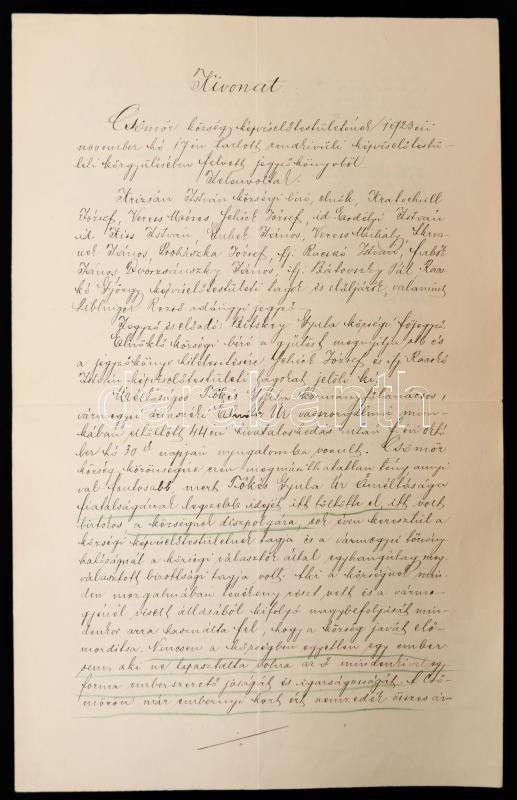 Kivonat
Csömör község képviselőtestületének 1923 évi
november hó 17 én tartott rendkívüli képviselőtestü-
leti közgyűlésében felvett jegyzőkönyvből
Jelenvoltak.
Krizsán István községi biró, elnök, Kratochvill
József, Veress József, id Erdélyi István
id. Kiss István János, Veress Mihály,
János, Prohászka József, ifj. Raczkó István, Szabó
János Dvorzsánszky János, ifj. Bátovszky Pál Racz-
kó György, képviselőtestületi tagok és elöljárók, valamint
Rezső adóügyi jegyző
Jegyző és előadó: Gyula községi főjegyző
Elnöklő községi biró a gyűlést megnyitja stb és
a jegyzőkönyv hitelesítésére József és ifj Raczkó
István képviselőtestületi tagokat jelöli ki.
Méltóságos Tőkés Gyula kormányfőtanácsos,
vármegyei árvaszéki Úr vasszorgalmú mun-
kában eltöltött 44 évi hivataloskodás után f. évi októ
ber hó 30 napján nyugalomba vonult. Csömör
község közönségére ezen megmásíthatatlan tény annyi
val fontosabb mert Tőkés Gyula Úr Őméltósága
fiatalságának legszebb idejét itt töltötte el, itt volt
birtokos a községnek díszpolgára, sok éven keresztül a
községi képviselőtestületnek tagja és a vármegyei törvény
hatóságnál a községi választók által egyhangúlag meg
választott bizottsági tagja volt. Aki a községnek min-
den mozgalmában tevékeny részt vett és a várme-
gyénél viselt állásából kifolyó nagybefolyását min-
denkor arra használta fel, hogy a község javát elő-
mordítsa. Nincsen a községben egyetlen egy ember
sem, aki ne tapasztalta volna az ő mindenkivel egy
forma emberszerető jóságát és igazságosságát. A Csö-
mörön már embernyi kort ért nemzedék összes ár-
darabanth